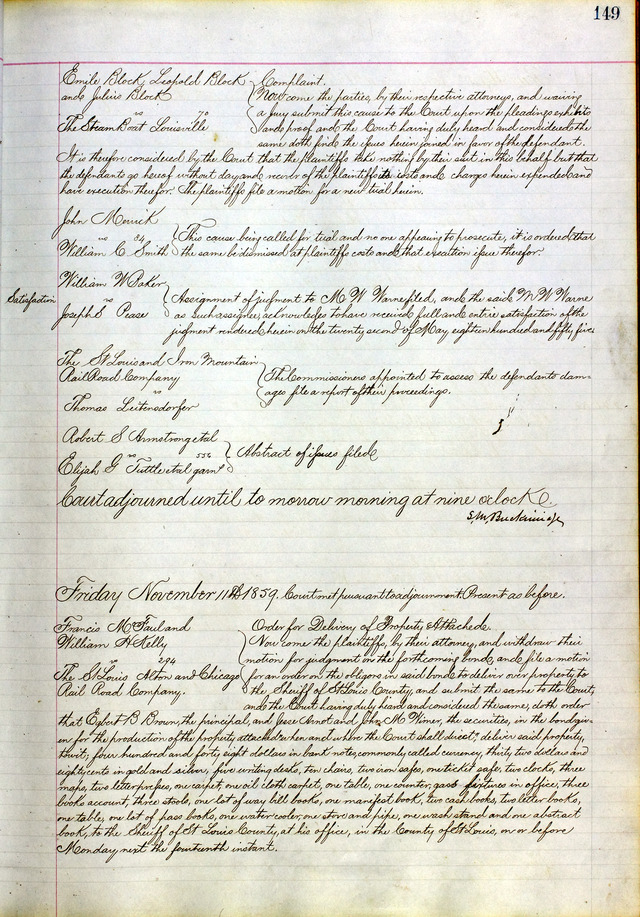 149
Emile Block, Leopold Block Complaint.
and Julius Block Now come the parties, by their respective attorneys, and waiving
vs 70 a jury submit this cause to the Court upon the pleadings exhibits
The Steam Boat Louisville and proof and the Court having duly heard and considered the
same doth find the issues herein joined in favor of the defendant.
It is therefore considered by the Court that the plaintiffs take nothing by their suit in this behalf but that
the defendants go hereof without day and recover of the plaintiffs its costs and charges herein expended and
have execution therefor. The plaintiffs file a motion for a new trial herein.
John Merrick
vs 84 This cause being called for trial and no one appearing to prosecute, it is ordered that
William C. Smith the same be dismissed at plaintiffs costs and that execution issue therefor.
William W Baker
Satisfaction vs Assignment of judgment to M. W. Warne filed, and the said M W Warne
Joseph S Pease as such assignee, acknowledges to have received full and entire satisfaction of the
judgment rendered herein on the twenty second of May, eighteen hundred and fifty five
The St Louis and Iron Mountain
Rail Road Company The Commissioners appointed to assess the defendants dam-
vs ages file a report of their proceedings.
Thomas Leitensdorfer
Robert S Armstrong et al
vs 556 Abstract of issues filed
Elijah G Tuttle et al garnt
Court adjourned until to morrow morning at nine oclock.
Friday November 11th 1859. Court met pursuant to adjournment Present as before.
Francis McFarland Order for Delivery of Property Attached.
William H Kelly Now come the plaintiffs, by their attorney, and withdraw their
vs 294 motion for judgment on the forthcoming bond, and file a motion
The St Louis Alton and Chicago for an order on the obligors in said bond to deliver over property to
Rail Road Company. the Sheriff of St Louis County, and submit the same to the Court,
and the Court having duly heard and considered the same, doth order
that B Brown, the principal, and Jesse Arnot and John M Wimer, the securities, in the bond giv-
en for the production of the property attached when and where the Court shall direct, deliver said property,
towit; four hundred and forty eight dollars in bank notes, commonly called currency, thirty two dollars and
eighty cents in gold and silver, five writing desks, ten chairs, two iron safes, one ticket safe, two clocks, three
maps, two letter presses, one carpet, one oil cloth carpet, one table, one counter, gas fixtures in office, three
books account, three stools, one lot of way bill books, one manifest book, two cash books, two letter books,
one table, one lot of pass books, one water cooler, one stove and pipe, one wash stand and one abstract
book, to the Sheriff of St Louis County, at his office, in the County of St Louis, on or before
Monday next the fourteenth instant.